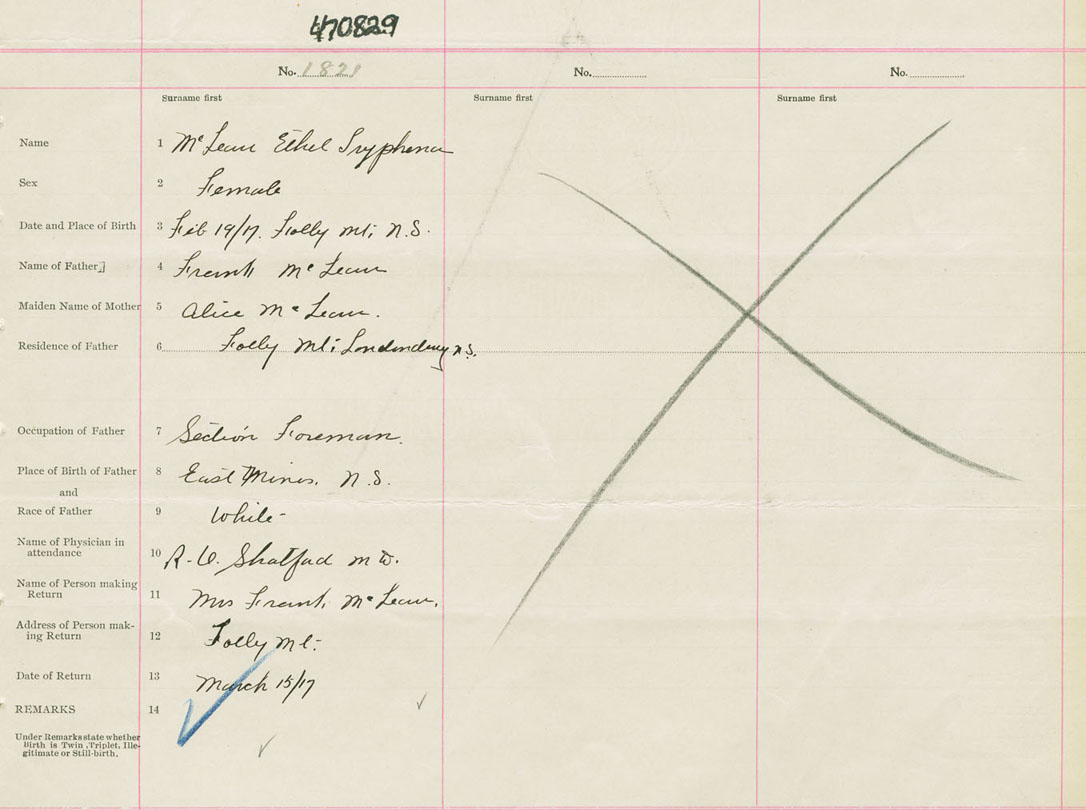 470829
No. 1821 No. No.
Surname first Surname first Surname first
Name 1 McLean Ethel Tryphena
Sex 2 Female
Date and Place of Birth 3 Feb 19/17. Folly Mt; N.S.
Name of Father] 4 Frank McLean
Maiden Name of Mother 5 Alice McLean.
Residence of Father 6 Folly Mt; Londonderry N.S.
Occupation of Father 7 Section Foreman.
Place of Birth of Father 8 East Mines, N.S.
and
Race of Father 9 White
Name of Physician in
attendance 10 R. U. Shatford M D.
Name of Person making
Return 11 Mrs Frank McLean.
Address of Person mak-
ing Return 12 Folly Mt:
Date of Return 13 March 15/17
REMARKS 14
Under Remarks state whether
Birth is Twin, Triplet, Ille-
gitimate or Still-birth.